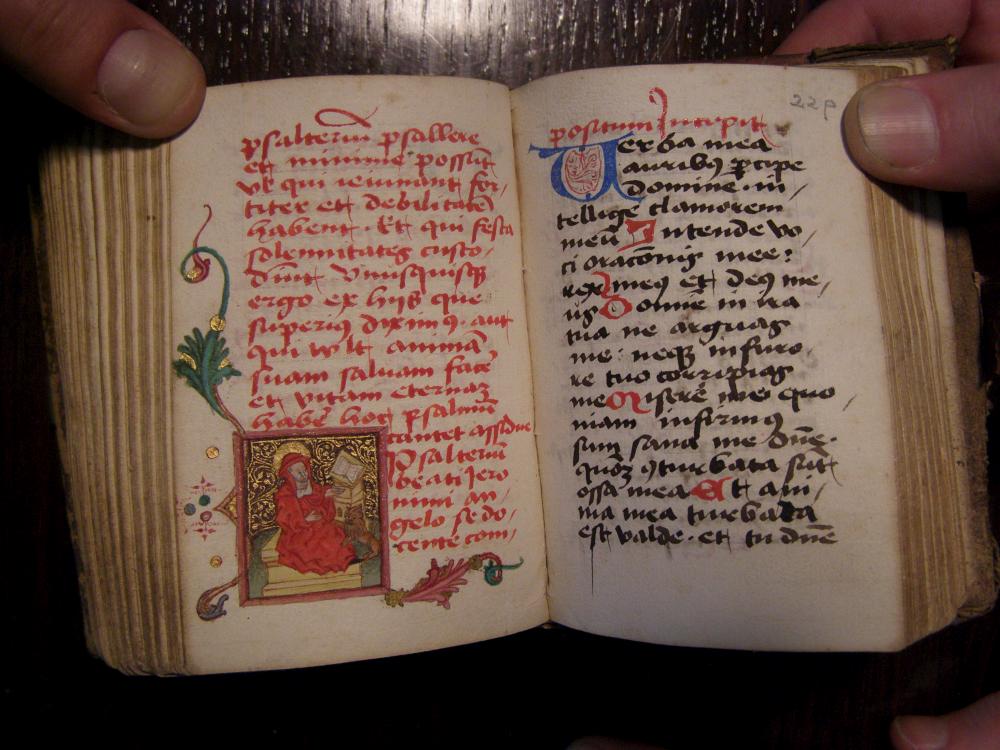 psalteriū psallere
et minime possūt
vt qui ieiunant for/
titer et debilitatē
habent. Et qui festa
solennitates custo/
diūt Vnusquisqꝫ
ergo ex hijs que
superiꝰ diximꝰ aut
qui vult animā
suam saluam facē
et vitam eternaꝫ
habē hoc psalmū
cantet assidue
Psalteriū
beati Jero
nimi an/
gelo se do/
cente com/
positum Incipit
22
Verba mea
auribꝰ ꝑcipe
domine in
tellige clamorem
meū Intende vo
ci oraconis mee:
rex meꝰ et deꝰ me/
us Domie in ira
tua ne arguas
me. neqꝫ in furo
re tuo corripias
me Miserē mei quo
niam infirmꝰ
sum sana me dn̄e.
quoꝫ ꝯturbata sūt
ossa mea Et ani/
ma mea turbata
est valde. et tu dn̄e